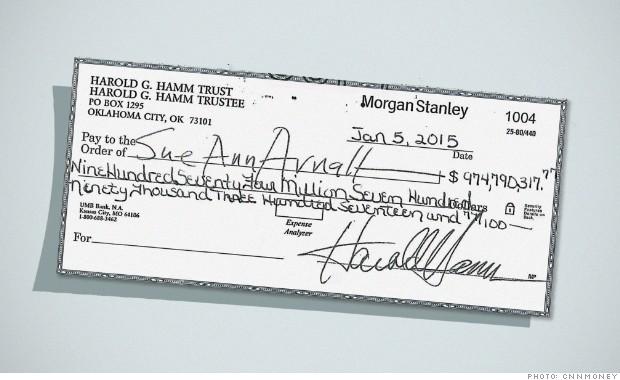 HAROLD G. HAMM TRUST
HAROLD G. HAMM TRUSTEE
PO BOX 1295
OKLAHOMA CITY, OK 73101
MorganStanley
1004
25-80/440
Jan 5, 2015
Date
Pay to the
Order of
Sue Ann Arnall
$ 974,790,317.77
Nine Hundred Seventy Four Million Seven Hundred
Dollars
Ninety Thousand Three Hundred Seventeen and 77/100
Security
Features
Details on
Back.
UMB Bank, N.A.
Kansas City, MO 64106
1-800-688-3462
Expense
Analyzer
For
Harold Hamm
MP
PHOTO: CNNMONEY